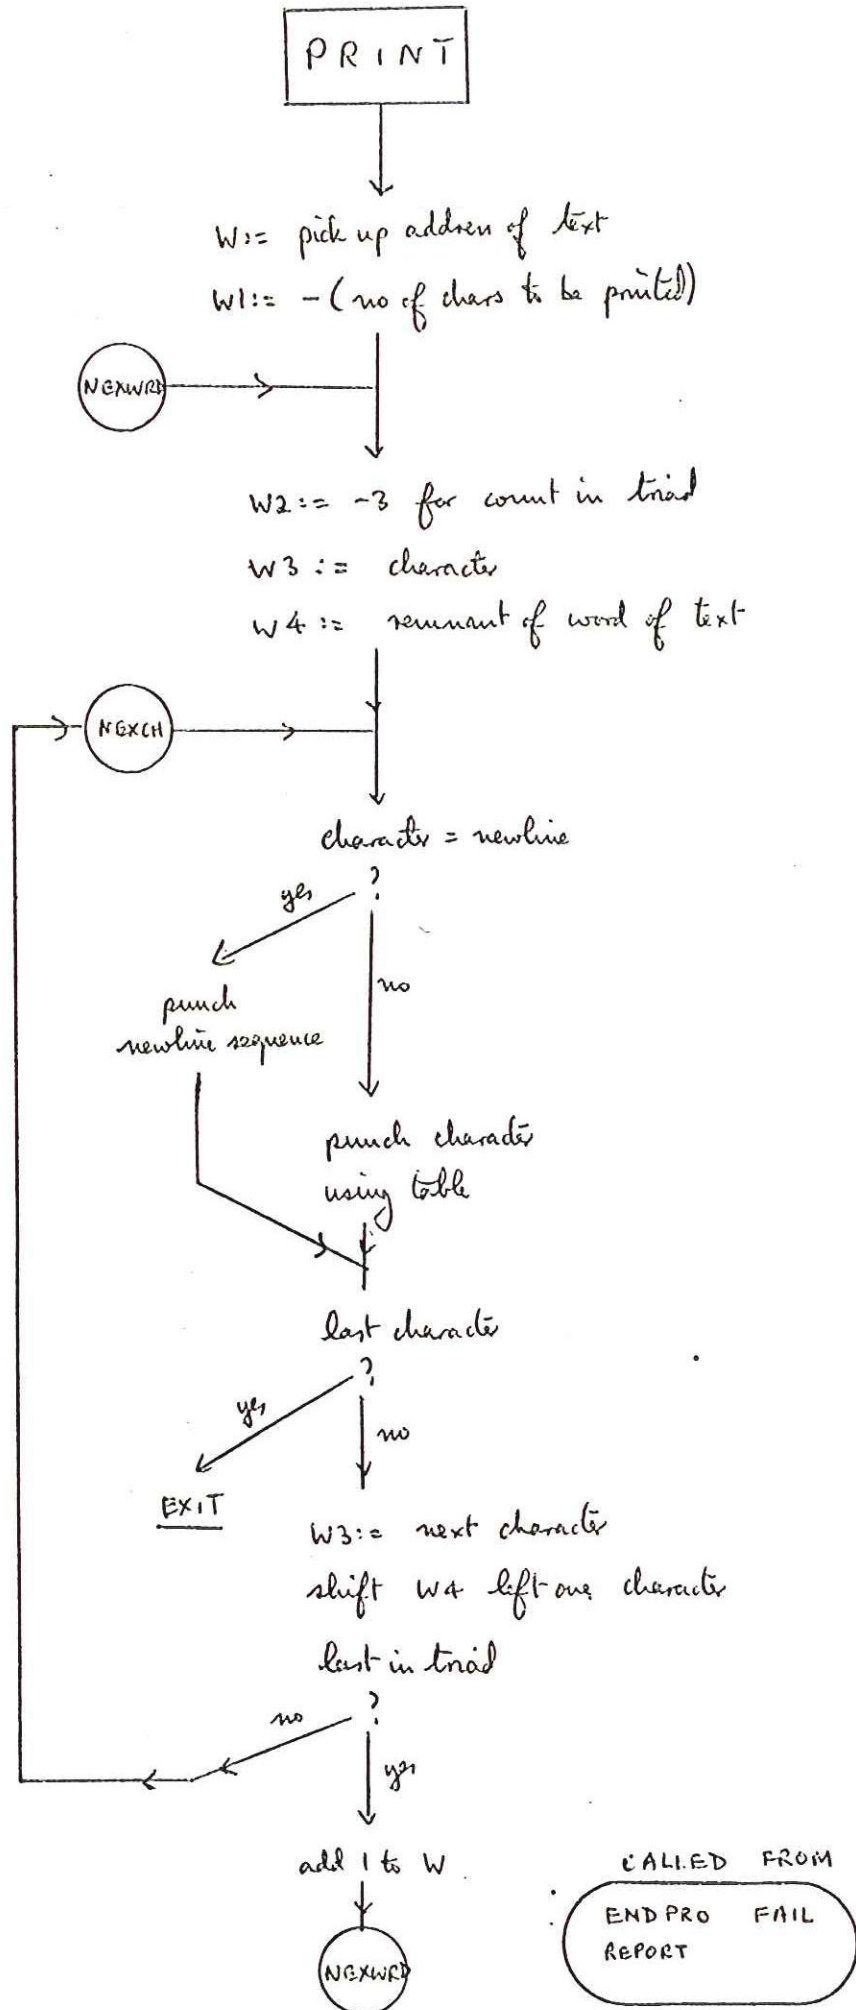 PRINT
W:= pick up address of text
W1:= -(no of chars to be printed)
NEXWRD
W2:= -3 for count in triad
W3:= character
W4:= remnant of word of text
NEXCH
character = newline
?
yes
no
punch
newline sequence
punch character
using table
last character
?
yes
no
EXIT
W3:= next character
shift W4 left one character
last in triad
?
no
yes
add 1 to W
NEXWRD
CALLED FROM
ENDPRO FAIL
REPORT